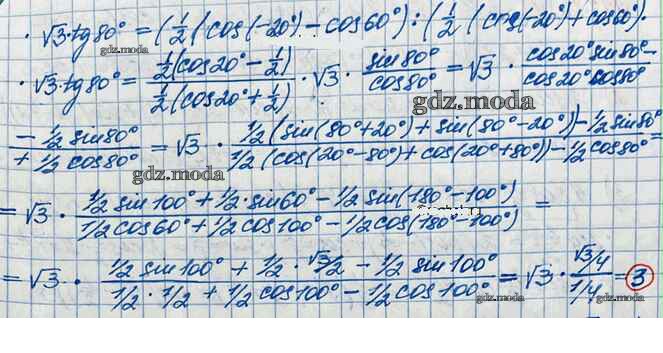 · √3·tg80° = (½(cos(-20°) - cos60°) : (½(cos(-20°) + cos60°).
· √3·tg80° = ½(cos20° - ½) / ½(cos20° + ½) · √3 · sin80° / cos80° = √3 · cos20° sin80° - / cos20° cos80°
gdz.moda
- ½ sin80° / + ½ cos80° = √3 · ½(sin(80°+20°) + sin(80°-20°)) - ½ sin80° / ½(cos(20°-80°) + cos(20°+80°)) - ½ cos80° =
gdz.moda
= √3 · ½ sin100° + ½·sin60° - ½ sin(180°-100°) / ½ cos60° + ½ cos100° - ½ cos(180°-100°) =
= √3 · ½ sin100° + ½ · √3/2 - ½ sin100° / ½ · ½ + ½ cos100° - ½ cos100° = √3 · √3/4 / 1/4 = 3
gdz.moda